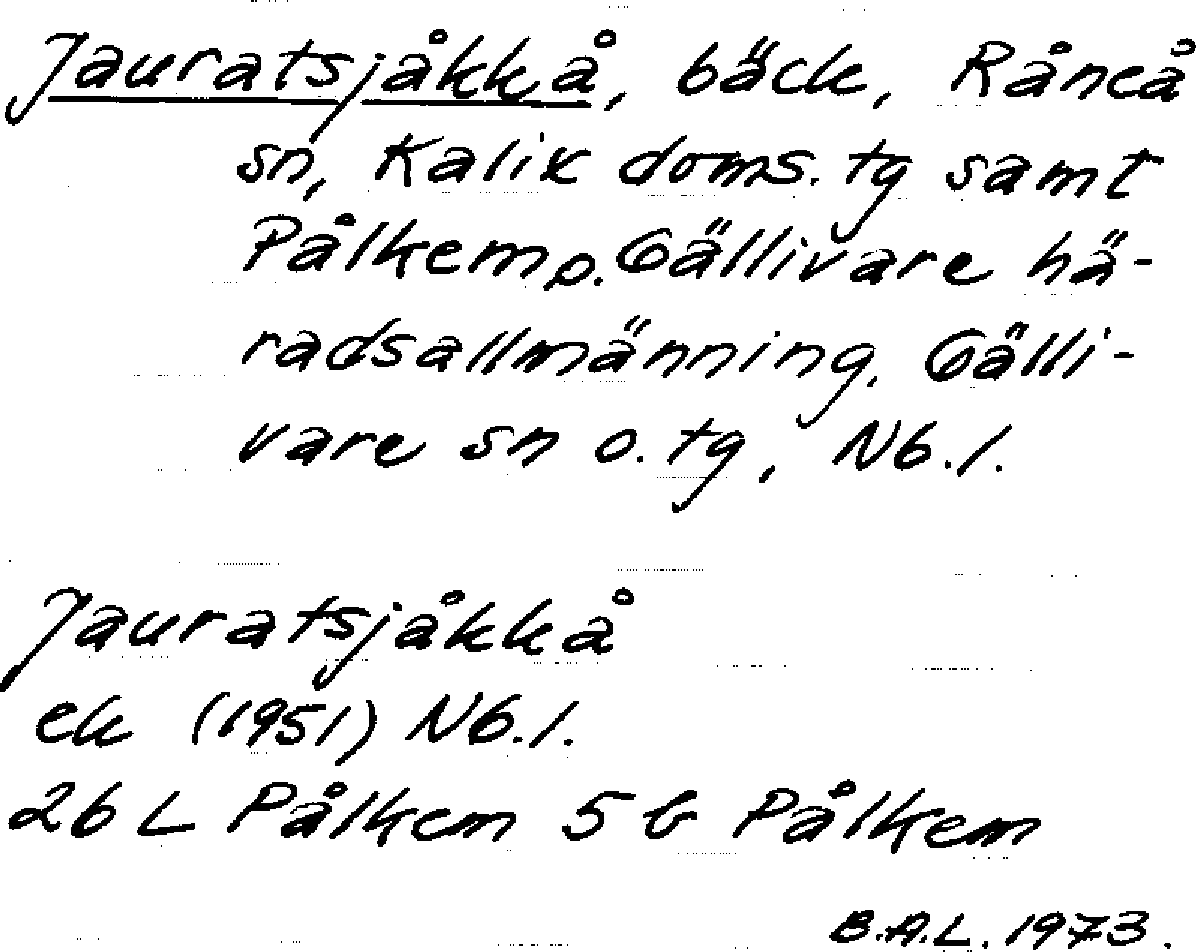 Jauratsjåkkå, bäck, Råneå
sn, Kalix doms. tg samt
Pålkem p. Gällivare hä-
radsallmänning, Gälli-
vare sn o. tg, Nb. l.
Jauratsjåkkå
ek (1951) Nb. l.
26 L Pålkem 5 b Pålkem
B.A.L. 1973.